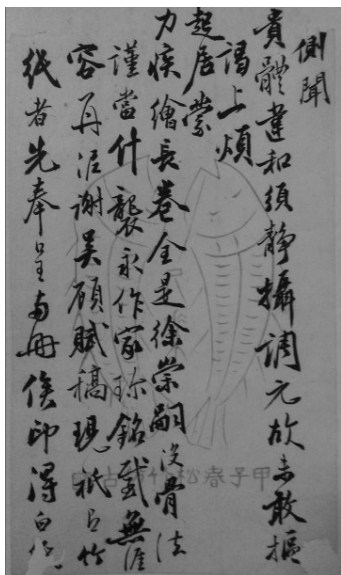 側聞
貴體違和須静攝調元故未敢摳
謁上煩
起居蒙
力疾繪長卷全是徐崇嗣没骨法
謹當什襲永作家珍銘感無涯
容再泥謝吴顧賦稿現祇占竹
紙者先奉呈兩冊俟印得白
甲子春松竹
古